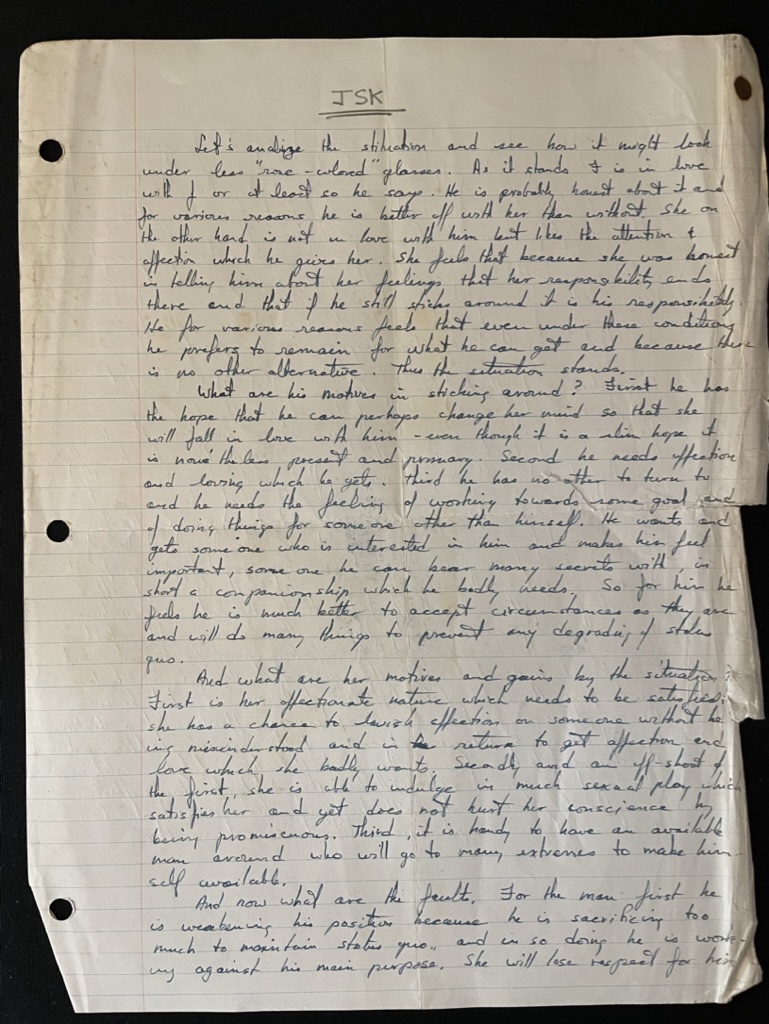 JSK
Let's analize the stituation and see how it might look
under less "rose-colored" glasses. As it stands I is in love
with J or at least so he says. He is probably honest about it and
for various reasons he is better off with her than without. She on
the other hand is not in love with him but likes the attention &
affection which he gives her. She feels that because she was honest
in telling him about her feelings that her responsibility ends
there and that if he still sticks around it is his responsibility.
He for various reasons feels that even under these conditions
he prefers to remain for what he can get and because there
is no other alternative. Thus the situation stands.
What are his motives in sticking around? First he has
the hope that he can perhaps change her mind so that she
will fall in love with him - even though it is a slim hope it
is none the less present and primary. Second he needs affection
and loving which he gets. Third he has no other to turn to
and he needs the feeling of working towards some goal and
of doing things for someone other than himself. He wants and
gets some one who is interested in him and makes him feel
important, some one he can bear many secrets with, in
short a companionship which he badly needs. So for him he
feels he is much better to accept circumstances as they are
and will do many things to prevent any degrading of status
quo.
And what are her motives and gains by the situation?
First is her affectionate nature which needs to be satisfied;
she has a chance to lavish affection on some one without be
ing misunderstood and in return to get affection and
love which she badly wants. Secondly and an off-shoot of
the first, she is able to indulge in much sexual play which
satisfies her and yet does not hurt her conscience by
being promiscuous. Third, it is handy to have an available
man around who will go to many extremes to make him-
self available.
And now what are the faults. For the man first he
is weakening his position because he is sacrificing too
much to maintain status quo, and in so doing he is work-
ing against his main purpose. She will lose respect for him